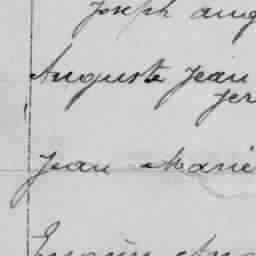 Joseph Aug
Auguste Jean
Jer
Jean Marie